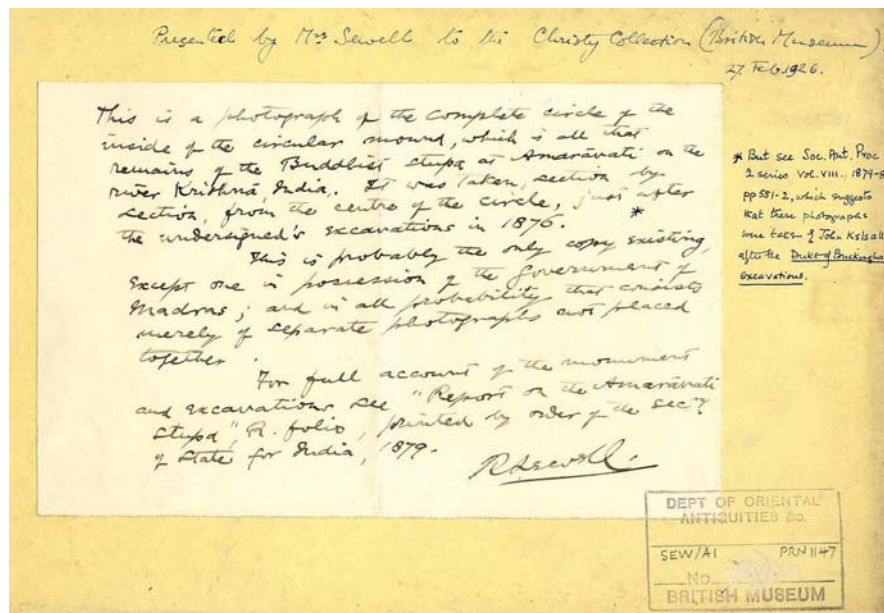 Presented by Mrs Sewell to the Christy Collection (British Museum)
27. Feb. 1926.
This is a photograph of the complete circle of the
inside of the circular mound, which is all that
remains of the Buddhist stupa at Amarāvati on the
river Krishnā, India. It was taken, section by
section, from the centre of the circle, just after
the undersigned's excavations in 1876. *
This is probably the only copy existing,
except one in possession of the Government of
Madras; and in all probability that consists
merely of separate photographs not placed
together.
For full account of the monument
and excavations see "Report on the Amarāvati
Stupa", R. folio, printed by order of the Secy
of State for India, 1879.
R Sewell.
* But see Soc. Ant. Proc
2 series vol. VIII. 1879-8
pp 551-2, which suggests
that these photographs
were taken by John Kelsall
after the Duke of Buckingha
excavations.
DEPT OF ORIENTAL
ANTIQUITIES &c.
SEW/A1 PRN 1147
No.
BRITISH MUSEUM